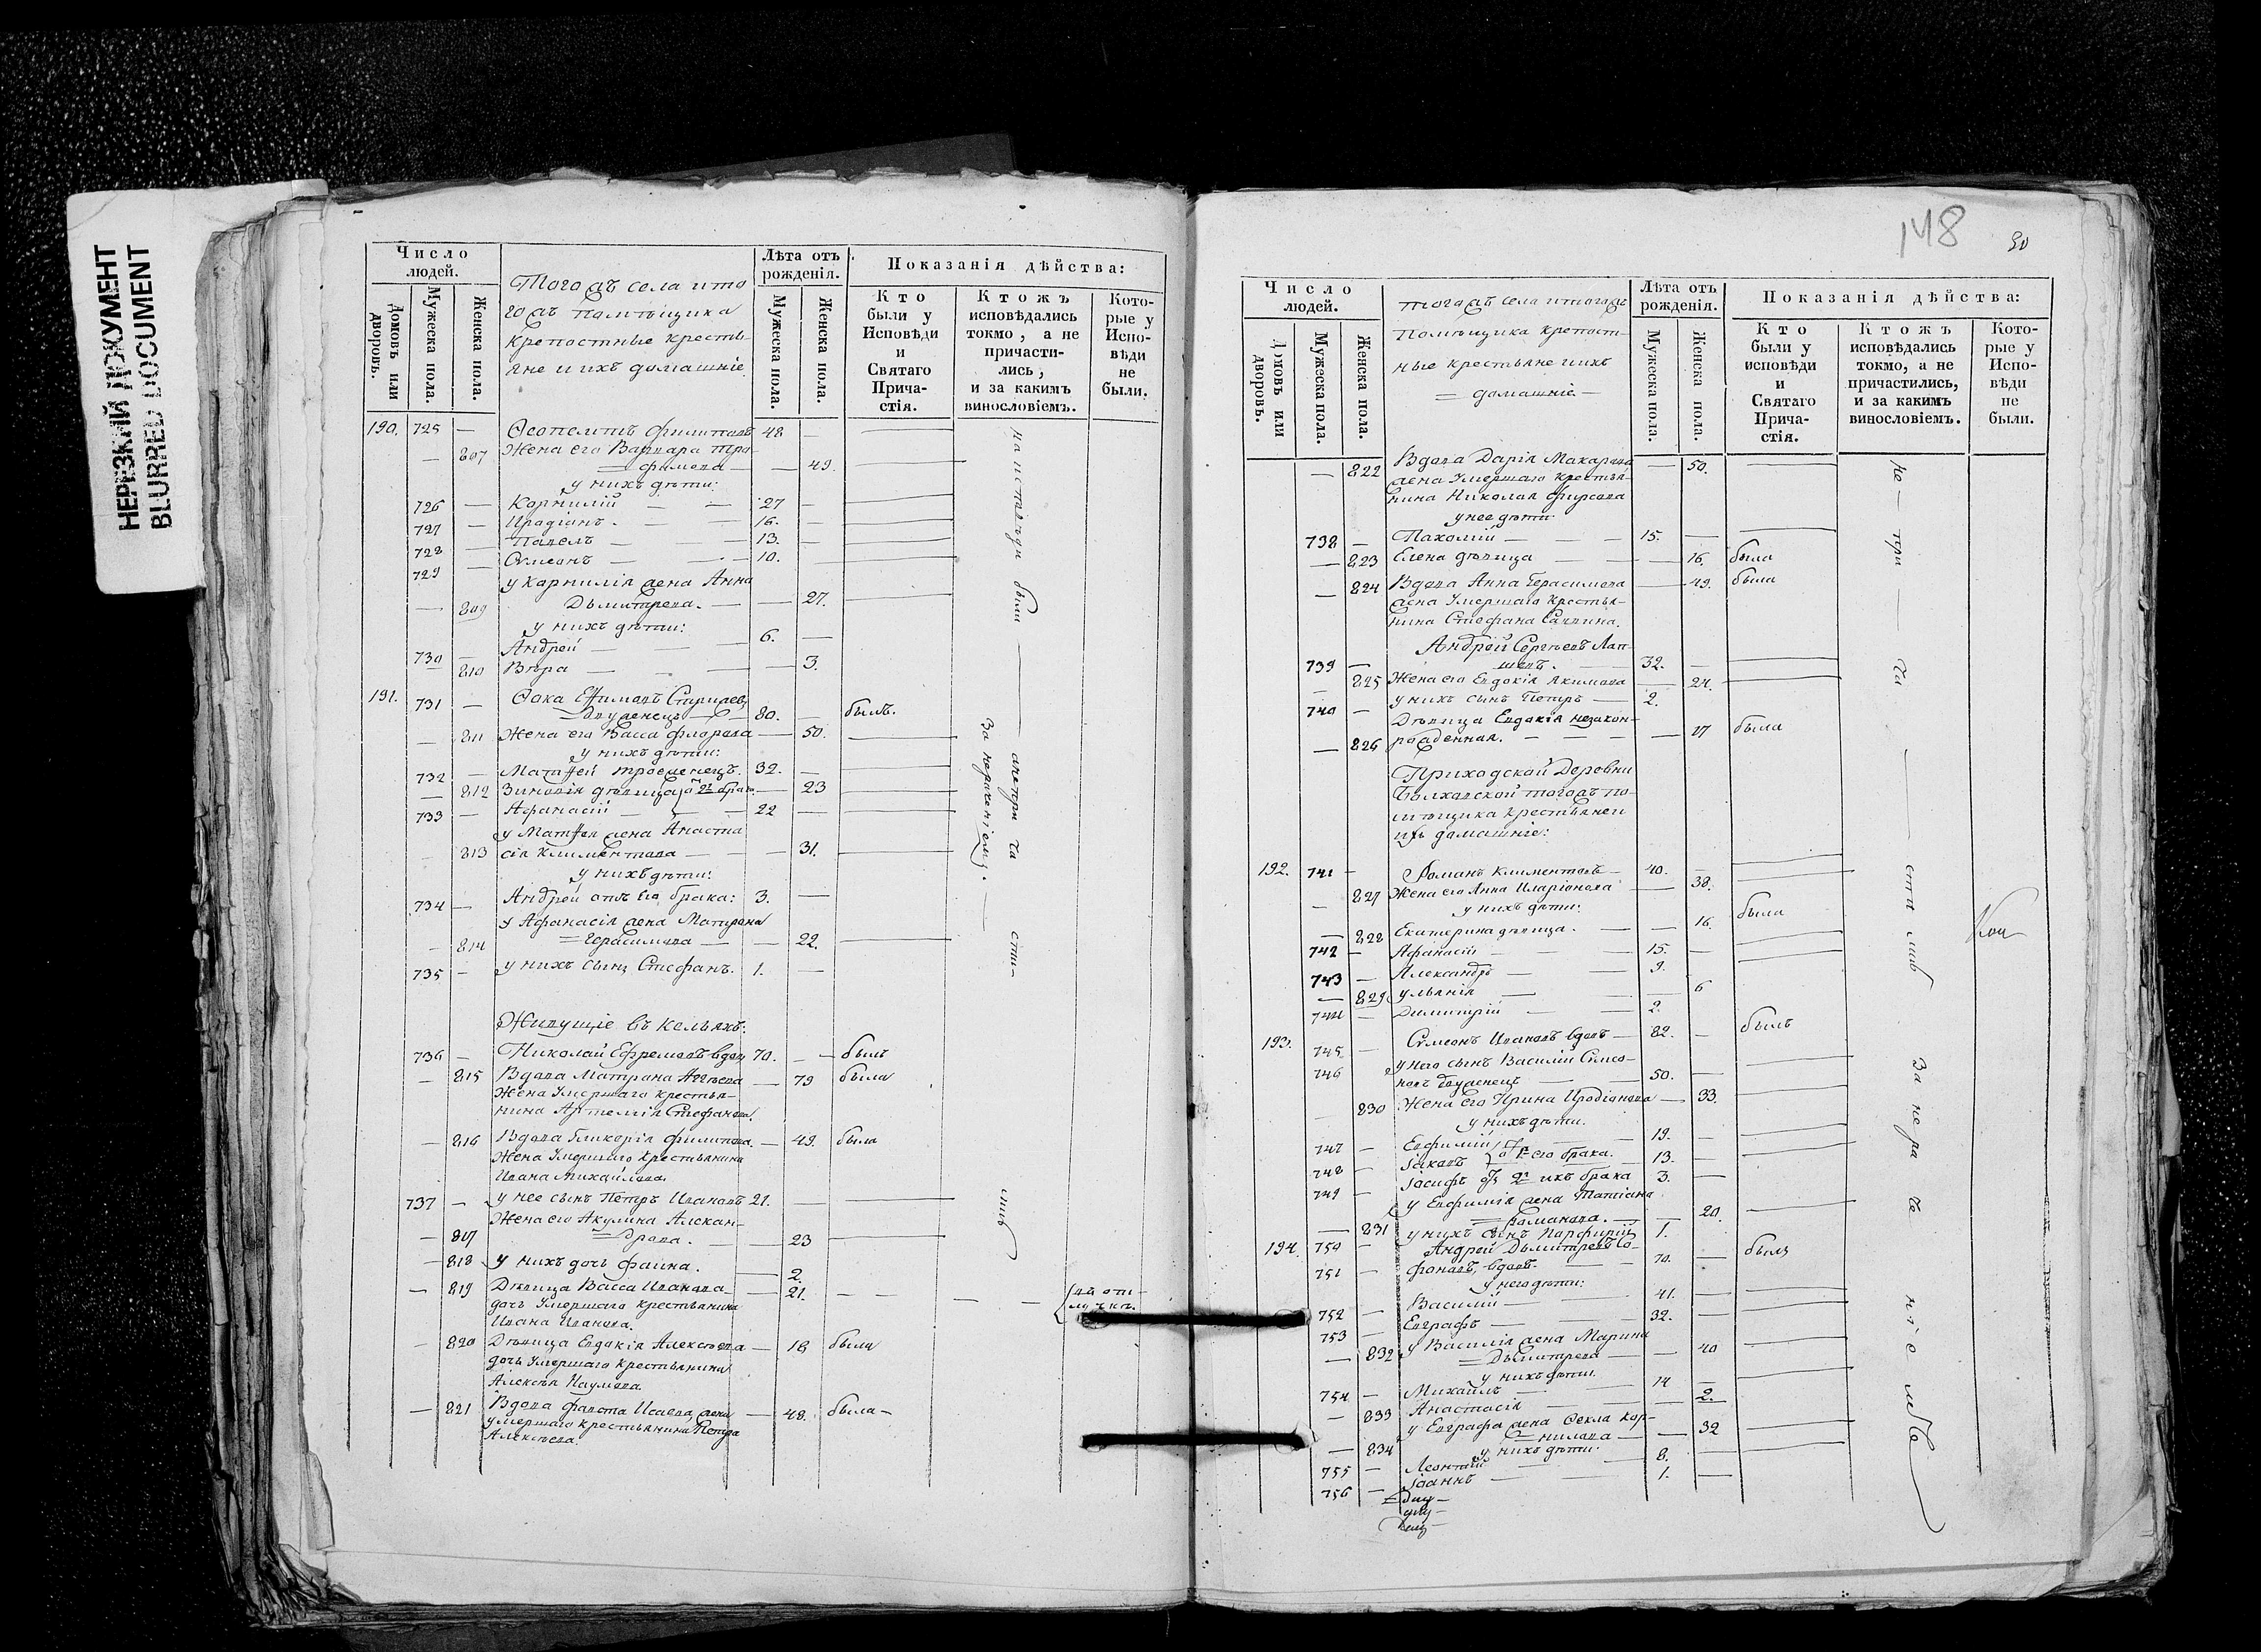 НЕРЕЗКИЙ ДОКУМЕНТ
BLURRED DOCUMENT
Число людей.
Домовъ или дворовъ.
Мужеска пола.
Женска пола.
Тогожъ села и то
гожъ помѣщика
крепостные кресть-
яне и ихъ домашніе
Лѣта отъ рожденія.
Мужеска пола.
Женска пола.
Показанія дѣйства:
Кто были у Исповѣди и Святаго Прича-стія.
Ктожъ исповѣдались токмо, а не причасти-лись, и за какимъ винословіемъ.
Кото-рые у Испо-вѣди не были.
190. 725 — Ѳеопемптъ Филиповъ 48 —
— 807 Жена его Варвара Тро-
фимова — — 49.
у нихъ дѣти:
726 — Корнилій — — 27 —
727 — Иродіонъ — — 16. —
728 — Павелъ — — 13. —
729 — Сѵмеонъ — — 10. —
у Корнилія жена Анна
— 809 Дьмитрева. — — 27.
у нихъ дѣти:
730 — Андрей — — 6. —
— 810 Вѣра — — — 3.
191. 731 — Ѳока Ефимовъ
Двуженецъ — 80. — былъ.
— 811 Жена его Васса Флорова — 50.
у нихъ дѣти:
732 — Матѳей троеженецъ. 32. —
— 812 Зиновія дѣвица — 23
733 — Афанасій — 22 —
у Матѳея жена Анаста
— 813 сія Климентова — — 31.
у нихъ дѣти:
734 — Андрей отъ его брака: 3. —
у Афанасія жена Матрона
— 814 Герасимова — — 22.
735 — у нихъ сынъ Стефанъ. 1. —
на исповѣди были — а не при ча — сти — лись
За нерачені емъ.
Живущіе въ кельяхъ:
736 — Николай Ефремовъ вдов 70. — былъ
— 815 Вдова Матрона Аггѣева — 79 была
Жена Умершаго крестья-
нина Артемія Стефанова.
— 816 Вдова Гликерія Филипова. — 49. была
Жена Умершаго крестьянина
Ивана Михайлова.
737 — у нее сынъ Петръ Ивановъ 21. —
Жена его Акулина Алексан-
— 817 дрова. — 23
— 818 у нихъ дочь Фаина. — 2.
— 819 Дѣвица Васса Иванова — 21. — — — — въ от-
дочь Умершаго крестьянина лучкѣ.
Ивана Иванова.
— 820 Дѣвица Евдокія Алексѣева — 18 была
дочь Умершаго крестьянина
Алексѣя Наумова.
— 821 Вдова Фавста Исаева, жена — 48. была —
умершаго крестьянина Петра
Алексѣева.
148
Число людей.
Домовъ или дворовъ.
Мужеска пола.
Женска пола.
Тогожъ села и тогожъ
Помѣщика крепост-
ные крестьяне и ихъ
домашніе —
Лѣта отъ рожденія.
Мужеска пола.
Женска пола.
Показанія дѣйства:
Кто были у исповѣди и Святаго Прича-стія.
Ктожъ исповѣдались токмо, а не причастились, и за какимъ винословіемъ.
Кото-рые у Испо-вѣди не были.
— 822 Вдова Дарія Макарова — 50.
жена Умершаго крестья-
нина Николая Фирсова
у нее дѣти:
738 — Пахомій — — 15. —
— 823 Елена дѣвица — — 16. была
— 824 Вдова Анна Герасимова — 49. была
жена Умершаго крестья-
нина Стефана Саввина.
Андрей Сергѣевъ Лап-
739 — шовъ. — 32. —
— 825 Жена его Евдокія Акимова — 24.
740 — у нихъ сынъ Петръ — 2.
Дѣвица Евдокія незакон-
— 826 рожденная. — — — 17 была
Приходской Деревни
Болховской тогожъ по-
мѣщика крестьяне и
ихъ домашніе:
192. 741 — Романъ Климентовъ — 40. —
— 827 Жена его Анна Иларіонова — 38.
у нихъ дѣти:
— 828 Екатерина дѣвица. — — 16. была
742 — Афанасій — — 15. —
743 — Александръ — 9.
— 829 Ульянія — — 6
744 — Димитрій — — 2.
193. 745 — Сѵмеонъ Ивановъ вдовъ — 82. — былъ
746 у него сынъ Василій Сѵмео-
новъ двуженецъ — 50. —
— 830 Жена его Ирина Иродіонова — 33.
у нихъ дѣти.
747 — Евфимій — 19. —
748 — Іаковъ его брака. — 13. —
749 — Іосифъ ихъ брака 3. —
у Евфимія жена Татіана
— 831 Романова. — — 20.
750 — у нихъ сынъ Порфирій 1.
194. Андрей Дьмитревъ Со-
751 — фоновъ, вдовъ. — 70. — былъ
у него дѣти:
752 — Василій — 41. —
753 — Евграфъ — 32. —
у Василія жена Марина
— 832 Дьмитрева — — 40
у нихъ дѣти.
754 — Михаилъ — 14 —
— 833 Анастасія — — 2.
у Евграфа жена Ѳекла Кор-
— 834 нилова — — 32
у нихъ дѣти:
755 — Леонтій — 8. —
756 — Іоаннъ — 1. —
не — при — ча — сти лись За не ра че ніе мъ